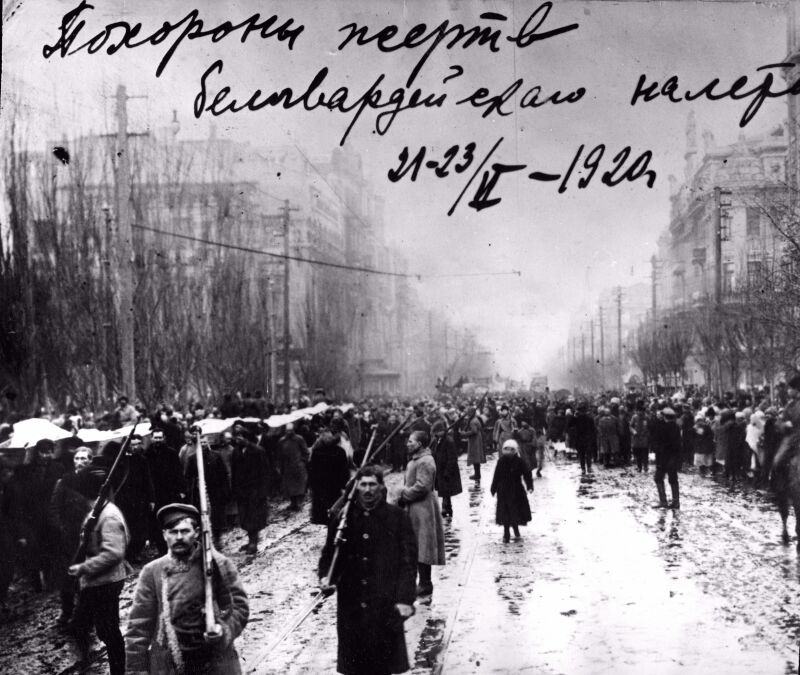 Похороны жертв
белогвардейскаго налета
21-23/II – 1920г